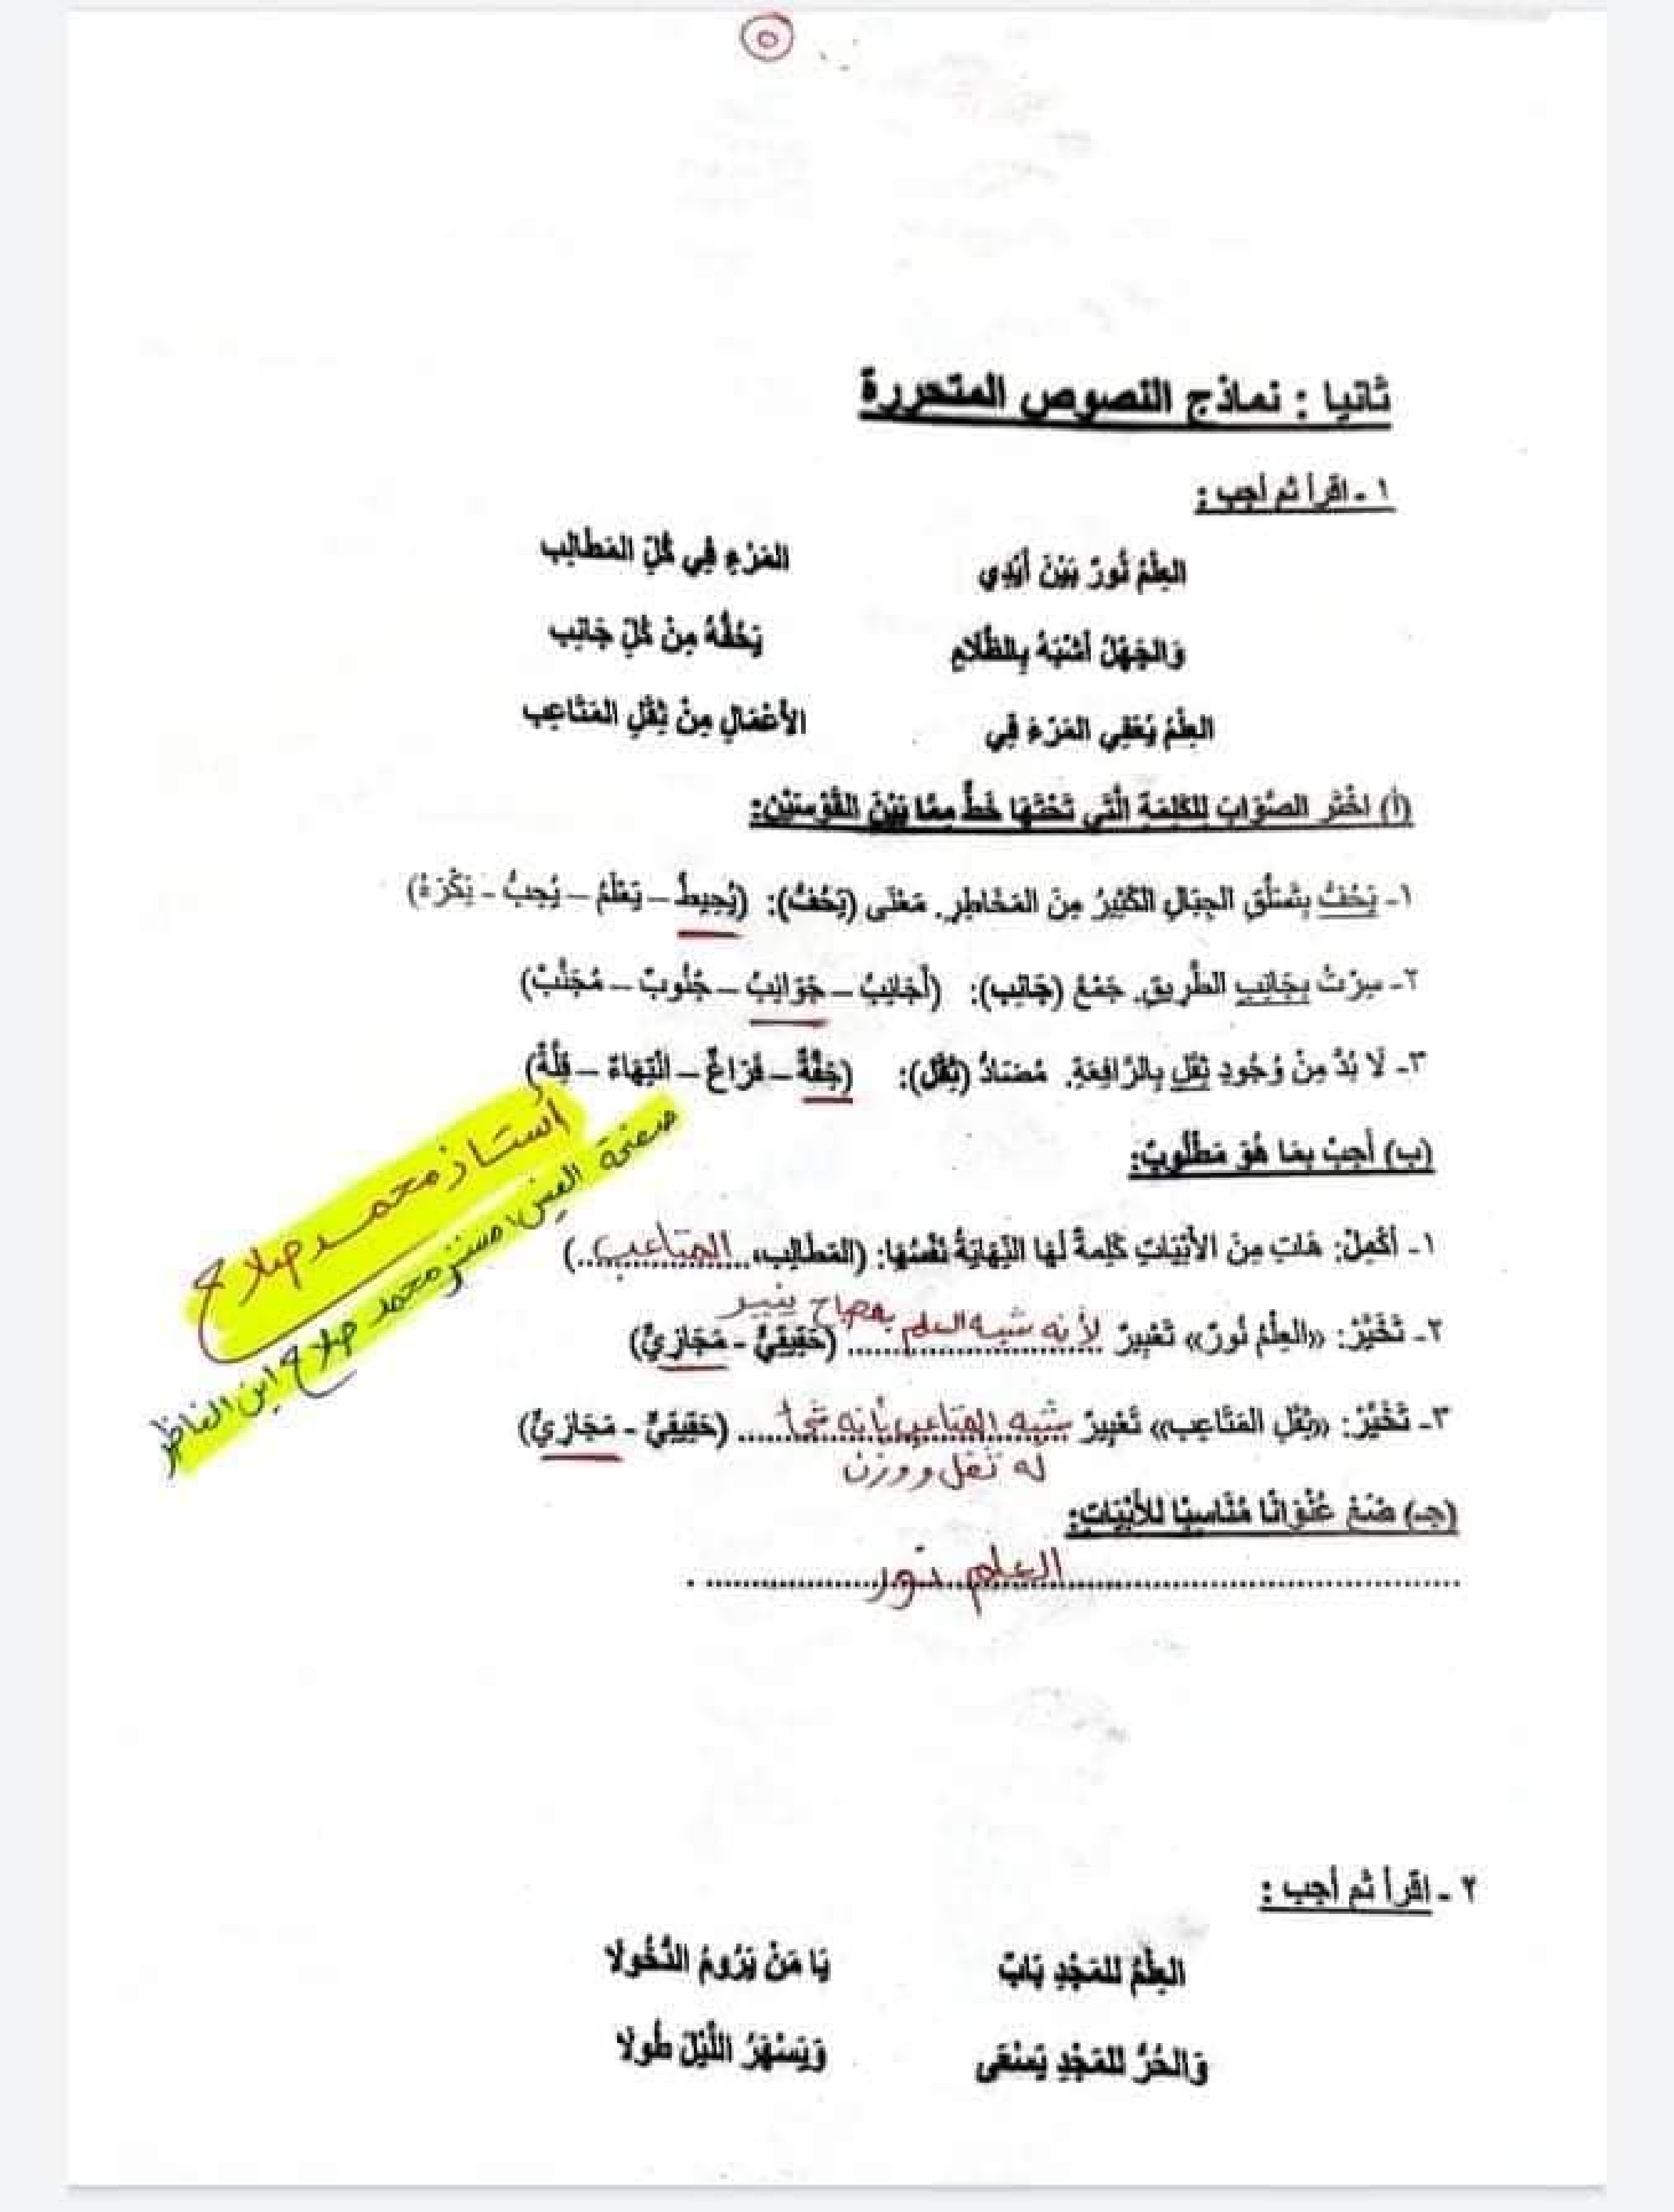 ٥
ثانيا : نماذج النصوص المتحررة
١ - اقرأ ثم أجب :
العِلْمُ نُورٌ بَيْنَ أَيْدِي المَرْءِ فِي كُلِّ المَطَالِبِ
وَالجَهْلُ أَشْبَهُ بِالظَّلَامِ يَحُفُّهُ مِنْ كُلِّ جَانِبِ
العِلْمُ يُعْفِي المَرْءَ فِي الأَعْمَالِ مِنْ ثِقَلِ المَتَاعِبِ
(أ) اخْتَرِ الصَّوَابَ لِلكَلِمَةِ الَّتِي تَحْتَهَا خَطٌّ مِمَّا بَيْنَ القَوْسَيْنِ:
١- يَحُفُّ بِتَسَلُّقِ الجِبَالِ الكَثِيرُ مِنَ المَخَاطِرِ. مَعْنَى (يَحُفُّ): (يُحِيطُ – يَعْلَمُ – يُحِبُّ – يَكْرَهُ)
٢- سِرْتُ بِجَانِبِ الطَّرِيقِ. جَمْعُ (جَانِب): (أَجَانِبُ – جَوَانِبُ – جُنُوبٌ – مُجَنَّبٌ)
٣- لَا بُدَّ مِنْ وُجُودِ ثِقَلٍ بِالرَّافِعَةِ. مُضَادُّ (ثِقَل): (خِفَّةٌ – فَرَاغٌ – انْتِهَاءٌ – قِلَّةٌ)
أستاذ محمد صلاح
صفحة الفيس مستر محمد صلاح ابن الناظر
(ب) أَجِبْ بِمَا هُوَ مَطْلُوبٌ:
١- أَكْمِلْ: هَاتِ مِنَ الأَبْيَاتِ كَلِمَةً لَهَا النِّهَايَةُ نَفْسُهَا: (المَطَالِب، المتاعب)
٢- تَخَيَّرْ: «العِلْمُ نُورٌ» تَعْبِيرٌ لأنه شبه العلم بمصباح ينير (حَقِيقِيٌّ - مَجَازِيٌّ)
٣- تَخَيَّرْ: «ثِقَلِ المَتَاعِب» تَعْبِيرٌ شبه المتاعب بأنه شئ (حَقِيقِيٌّ - مَجَازِيٌّ)
له ثقل ووزن
(جـ) ضَعْ عُنْوَانًا مُنَاسِبًا لِلأَبْيَاتِ:
العلم نور
٢ - اقرأ ثم أجب :
العِلْمُ للمَجْدِ بَابٌ يَا مَنْ يَرُومُ الدُّخُولَا
وَالحُرُّ للمَجْدِ يَسْعَى وَيَسْهَرُ اللَّيْلَ طُولَا